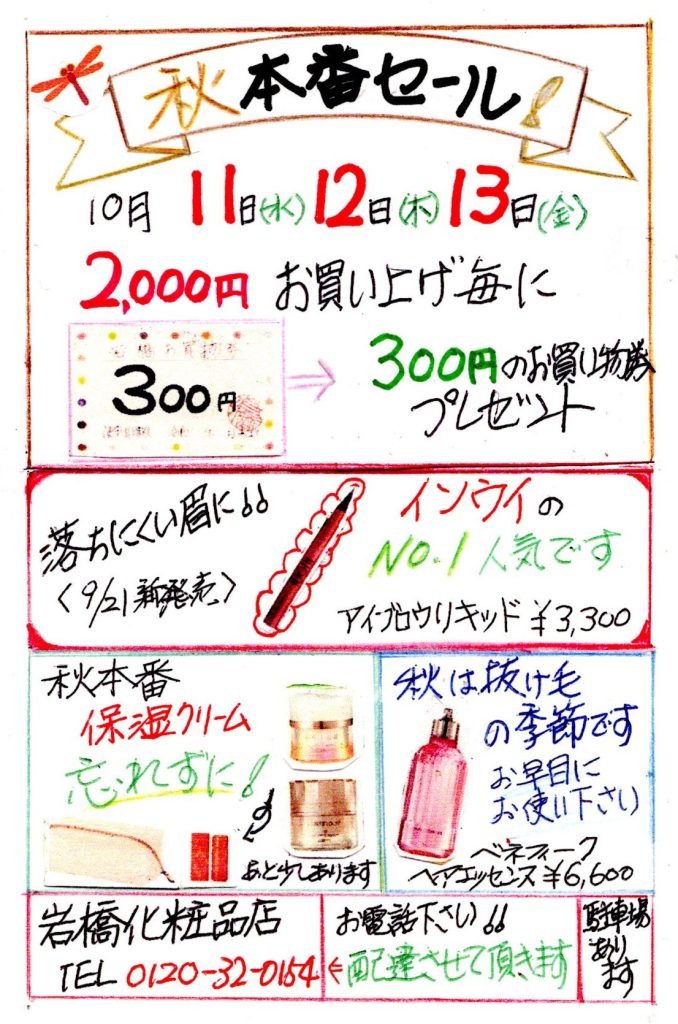 秋本番セール
10月 11日(水) 12日(木) 13日(金)
2,000円 お買い上げ毎に
300円
300円のお買い物券
プレゼント
落ちにくい眉に
〈9/21新発売〉
インウイの
No.1人気です
アイブロウリキッド ¥3,300
秋本番
保湿クリーム
忘れずに!
あと少しあります
秋は抜け毛
の季節です
お早目に
お使い下さい
ベネフィーク
ヘアエッセンス ¥6,600
岩橋化粧品店
TEL 0120-32-0154
お電話下さい
配達させて頂きます
駐車場
あり
ます